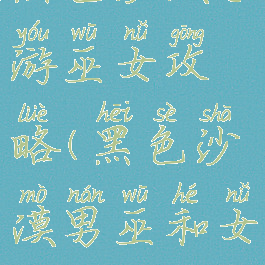 yóu wū nǚ gōng
游巫女攻
lüè hēi sè shā
略(黑色沙
mò nán wū hé nǚ
漠男巫和女